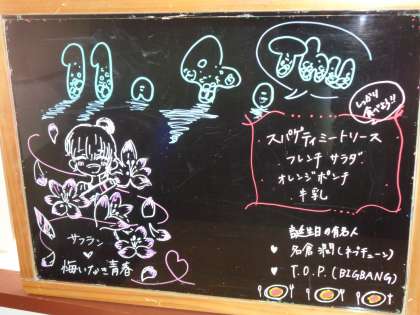 11.4 Thu
しっかり
食べよう!!
スパゲティミートソース
フレンチサラダ
オレンジポンチ
牛乳
サフラン
♥
悔いなき青春
誕生日の有名人
♥ 名倉 潤(ネプチューン)
♥ T.O.P.(BIGBANG)